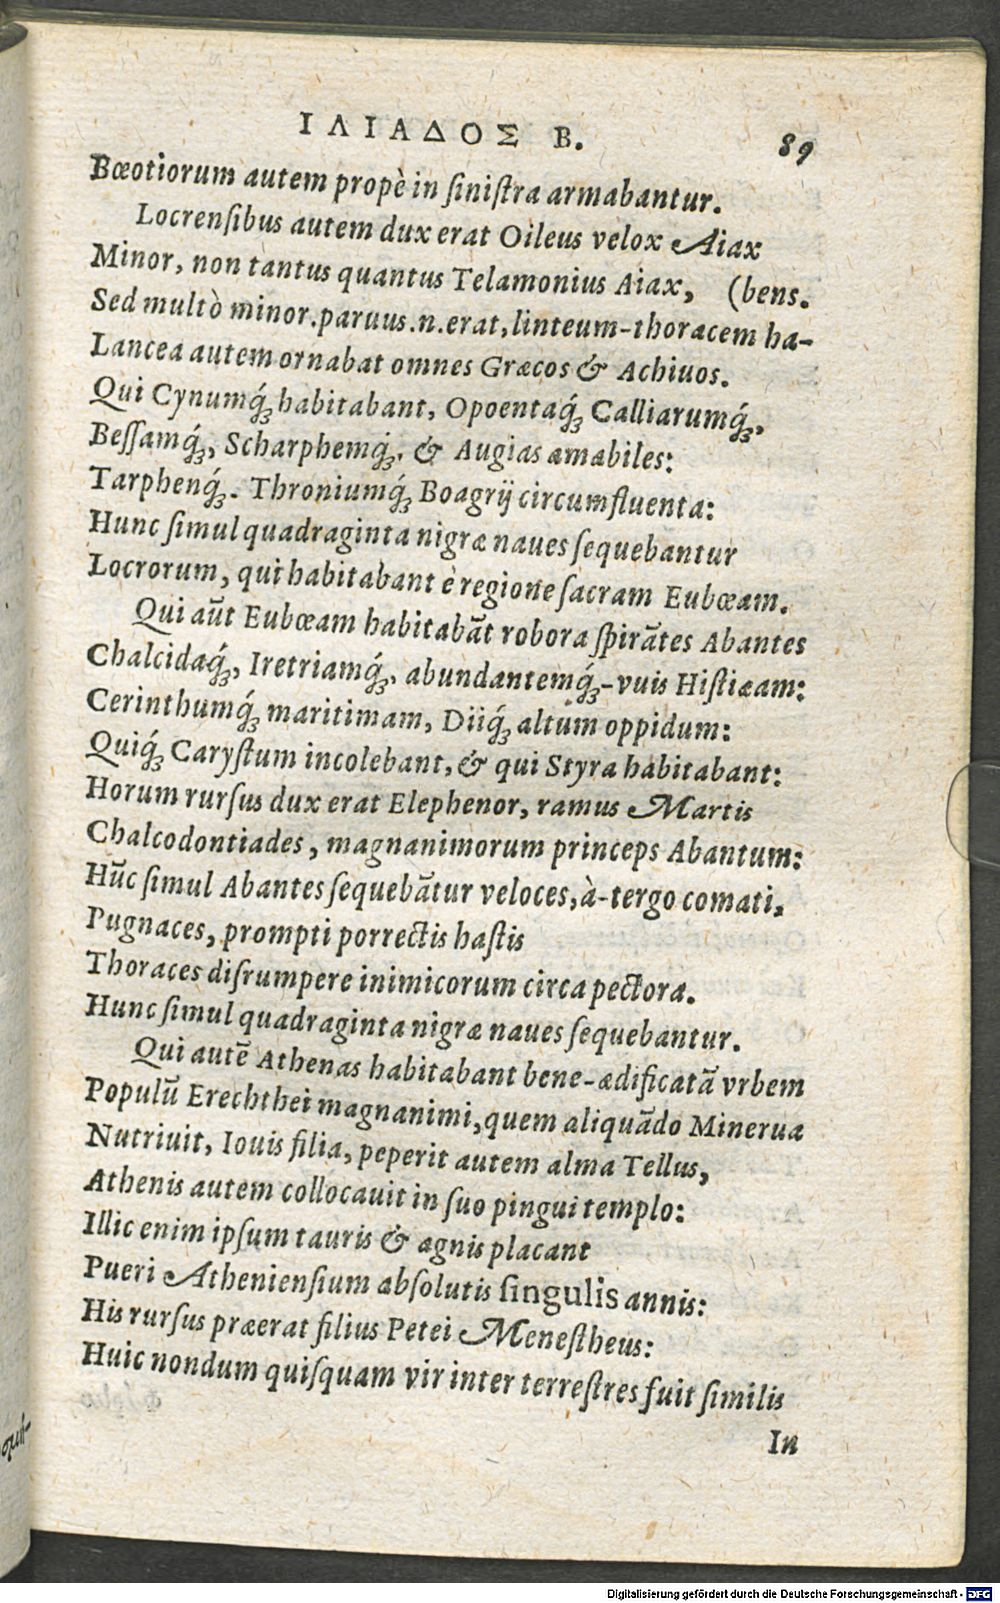 ΙΛΙΑΔΟΣ Β. 89
Bœotiorum autem propè in ſiniſtra armabantur.
Locrenſibus autem dux erat Oileus velox Aiax
Minor, non tantus quantus Telamonius Aiax, (bens.
Sed multò minor. paruus .n. erat, linteum-thoracem ha-
Lancea autem ornabat omnes Græcos & Achiuos.
Qui Cynumq́ꝫ habitabant, Opoentaq́ꝫ Calliarumq́ꝫ,
Beſſamq́ꝫ, Scharphemq́ꝫ. & Augias amabiles:
Tarphenq́ꝫ. Throniumq́ꝫ Boagrij circumfluenta:
Hunc ſimul quadraginta nigræ naues ſequebantur
Locrorum, qui habitabant è regione ſacram Eubœam.
Qui aūt Eubœam habitabāt robora ſpirātes Abantes
Chalcidaq́ꝫ, Iretriamq́ꝫ. abundantemq́ꝫ-vuis Hiſtiæam:
Cerinthumq́ꝫ maritimam, Diiq́ꝫ altum oppidum:
Quiq́ꝫ Caryſtum incolebant, & qui Styra habitabant:
Horum rurſus dux erat Elephenor, ramus Martis
Chalcodontiades, magnanimorum princeps Abantum:
Hūc ſimul Abantes ſequebātur veloces, à-tergo comati,
Pugnaces, prompti porrectis haſtis
Thoraces diſrumpere inimicorum circa pectora.
Hunc ſimul quadraginta nigræ naues ſequebantur.
Qui autē Athenas habitabant bene-ædificatā vrbem
Populū Erechthei magnanimi, quem aliquādo Minerua
Nutriuit, Iouis filia, peperit autem alma Tellus,
Athenis autem collocauit in ſuo pingui templo:
Illic enim ipſum tauris & agnis placant
Pueri Athenienſium abſolutis ſingulis annis:
His rurſus præerat filius Petei Meneſtheus:
Huic nondum quiſquam vir inter terreſtres fuit ſimilis
In
Digitalisierung gefördert durch die Deutsche Forschungsgemeinschaft - DFG